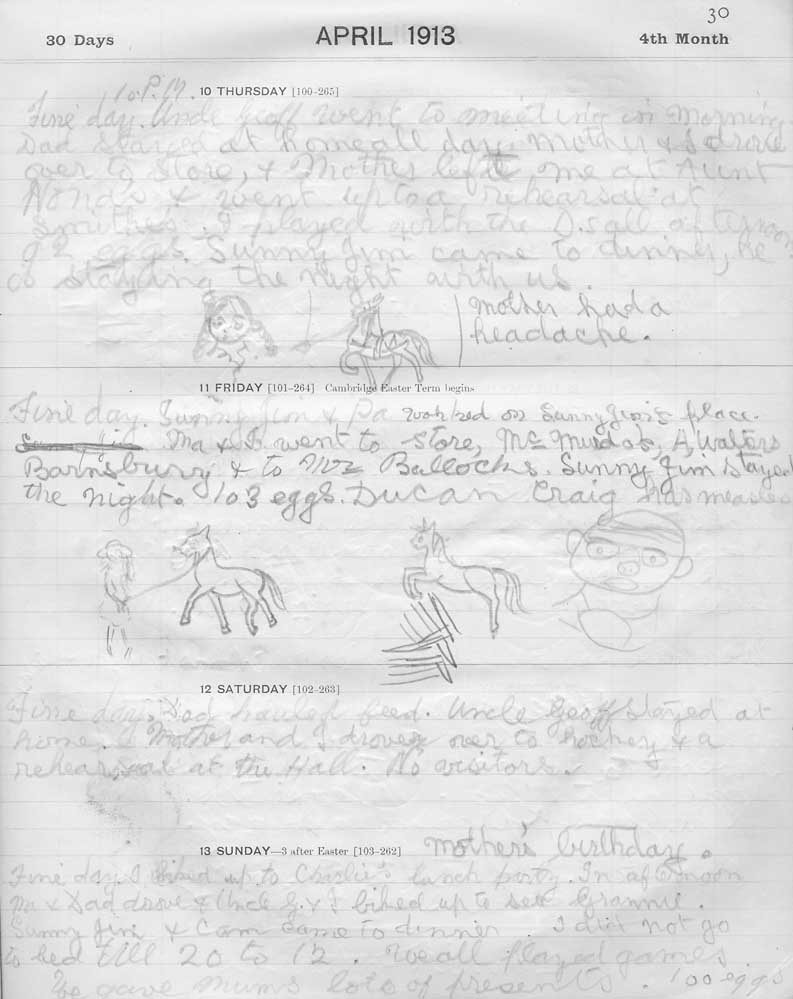 30
30 Days APRIL 1913 4th Month
10 P.M. 10 THURSDAY [100-265]
Fine day. Uncle Geoff went to meeting in morning.
Dad stayed at home all day. Mother & I drove
over to store, & Mother left me at Aunt
Nona's & went up to a rehearsal at
Smithes. I played with the D.s all afternoon
92 eggs. Sunny Jim came to dinner, he
is staying the night with us.
Mother had a
headache.
11 FRIDAY [101-264] Cambridge Easter Term begins
Fine day. Sunny Jim & Pa worked on Sunny Jim's place.
Ma & I went to store, A. Walters
Barnsbury & to Mrs Bullocks. Sunny Jim stayed
the night. 103 eggs. Ducan Craig has measles
12 SATURDAY [102-263]
Fine day. Dad hauled feed. Uncle Geoff stayed at
home. Mother and I drove over to hockey & a
rehearsal at the Hall. No visitors.
13 SUNDAY—3 after Easter [103-262] Mother's birthday.
Fine day. I biked up to Charlie's lunch party. In afternoon
Ma & Dad drove & Uncle G. & I biked up to see Grannie.
Sunny Jim & Cam came to dinner. I did not go
to bed till 20 to 12. We all played games.
We gave Mums lots of presents. 100 eggs